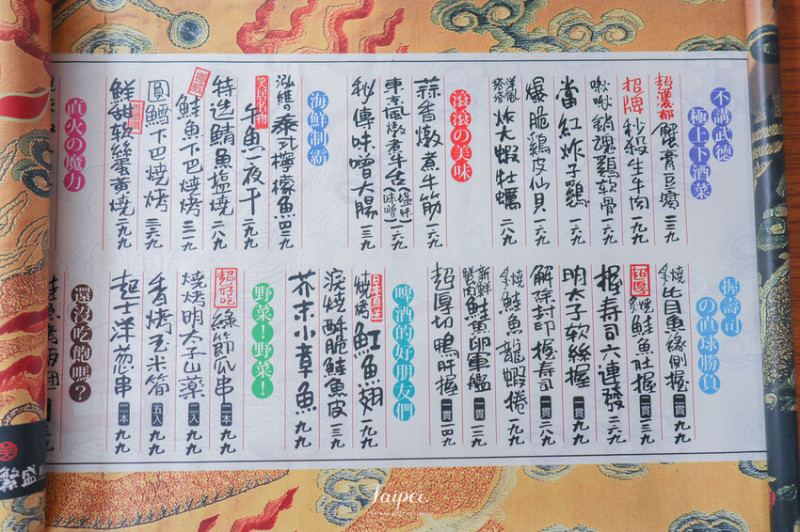 不講武德
極上下酒菜
超濃郁 蟹膏豆腐
招牌 秒殺生牛肉 一九九
啾啾銷魂雞软骨 一六九
當紅炸子雞
爆脆雞皮仙貝 一六九
炸大蝦牡蠣 二八九
滾滾の美味
蒜香燉煮牛筋 一六九
燉煮牛舌(塩味 味噌) 一六九
秘傳味噌大腸 一三九
海鮮制霸
泰式檸檬魚 四三九
午魚一夜干 二九九
特选鯖魚塩燒 二八九
鮭魚下巴燒烤 三一九
圓鱈下巴燒烤 三六九
鮮甜软絲蟹黃燒 二九九
直火の魔力
握壽司
の直球勝負
炙燒比目魚緣側握 二貫 九九
超厚 炙燒鮭魚肚握 二貫 一三九
握寿司六連發 二三九
明太子软絲握 一貫 九九
解除封印握寿司 一貫 二八九
炙燒鮭魚龍蝦捲 一九九
新鮮蟹肉鮭魚卵軍艦 一貫 一三九
超厚切鴨肝握 一貫 一四九
啤酒的好朋友們
日本直送 燒烤魟魚翅 一九九
涙燒酥脆鮭魚皮 一三九
芥末小章魚 九九
野菜！野菜！
超好吃 綠節瓜串 二本 九九
燒烤明太子山藥 二入 九九
香烤玉米筍 五入 九九
起士洋葱串 二本 九九
還沒吃飽嗎？
Taipei